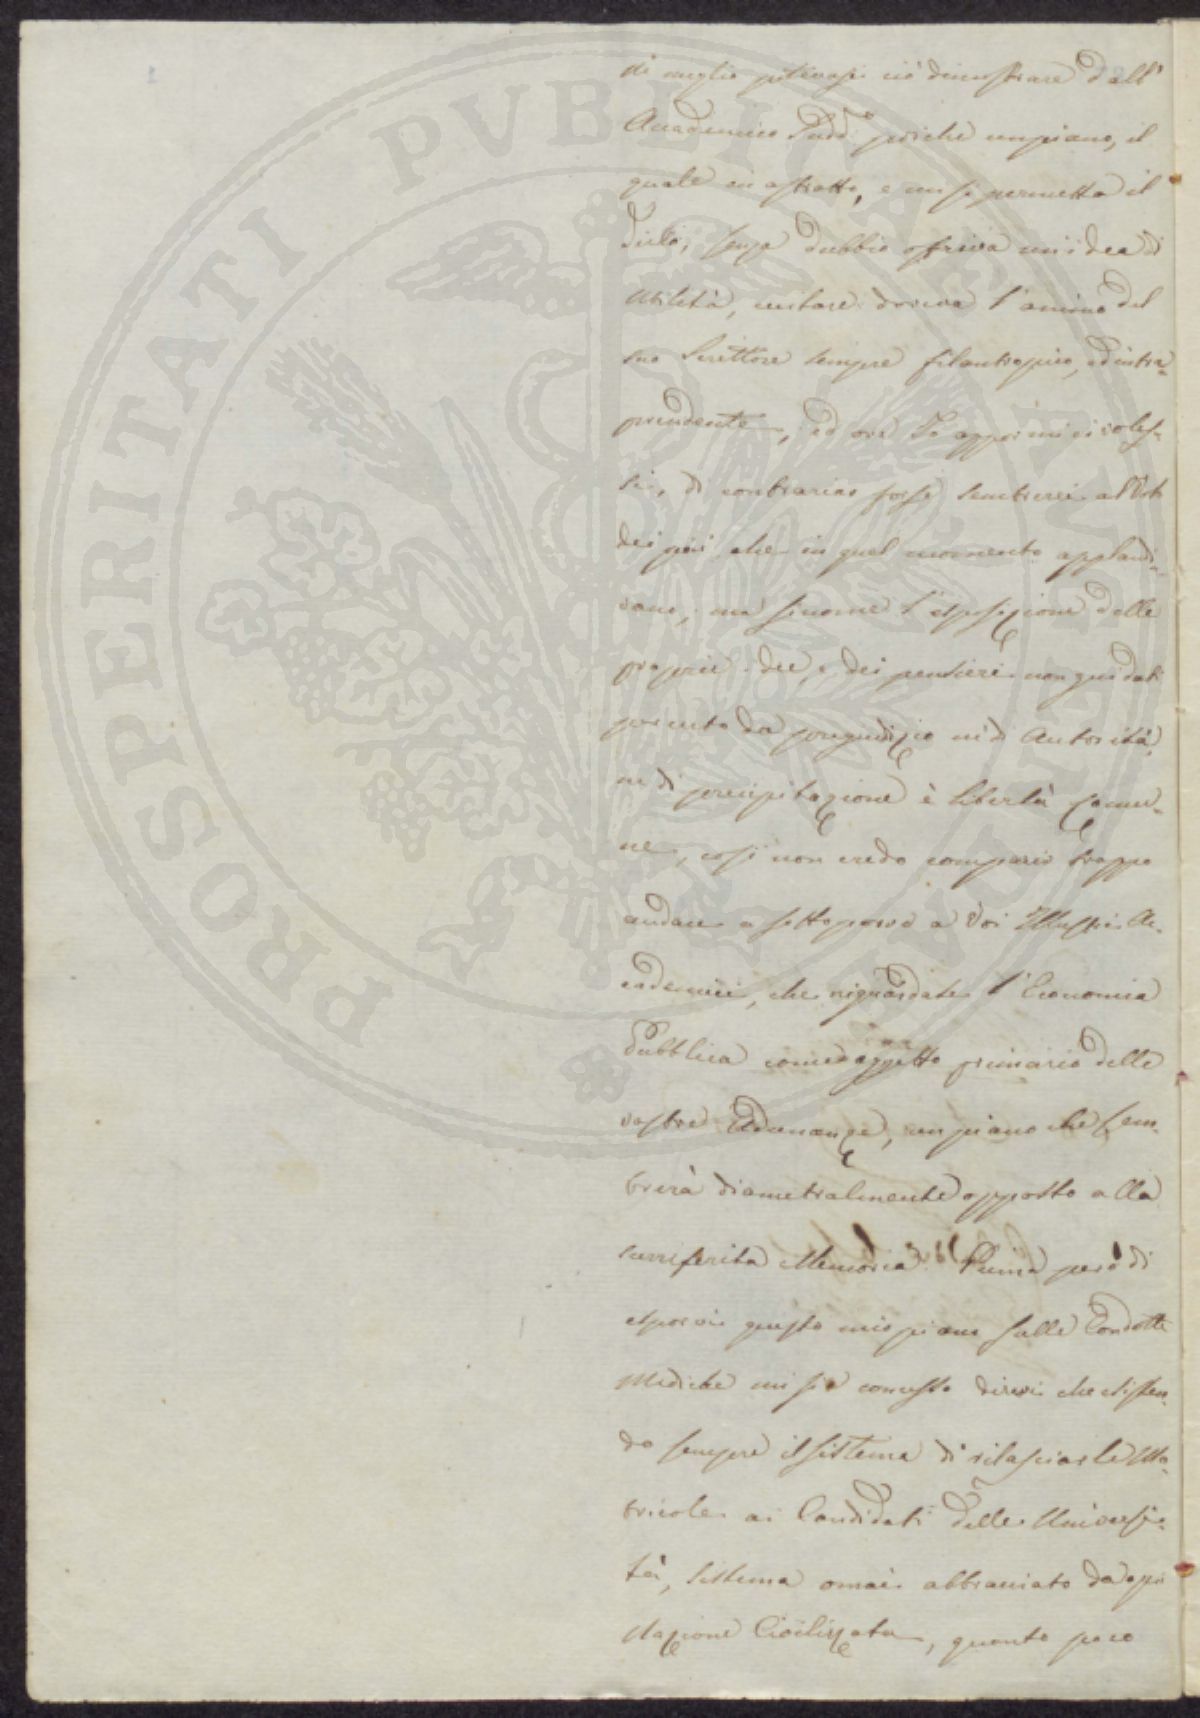 di meglio potevasi ciò dimostrare dall'
Accademico Sudd.o poichè un piano, il
quale in astratto, e mi si permetta il
dirlo, senza dubbio offriva un'idea di
utilità, invitare doveva l'animo del
suo Scrittore sempre filantropico, ed intra=
prendente, ed ora Io appormici voles=
si, di contrario forse sembrerei al Voto
dei più che in quel momento applaudi=
vano, ma siccome l'esposizione delle
proprie idee, e dei pensieri non guidati
percerto da pregiudizio nè di Autorità,
nè di precipitazione è libertà Comu=
ne, così non credo comparir troppo
audace a sottoporre a Voi Illustri Ac=
cademici, che riguardate l'Economia
Pubblica come oggetto primario delle
vostre Adunanze, un piano che sem=
brerà diametralmente opposto alla
surriferita Memoria. Prima però di
esporvi questo mio piano sulle Condotte
Mediche mi sia concesso dirvi che esisten=
do sempre il sistema di rilasciar le Ma=
tricole ai Candidati delle Universi=
tà, sistema omai abbracciato da ogni
Nazione Civilizzata, quanto poco
PROSPERITATI PUBLICAE AUGENDAE